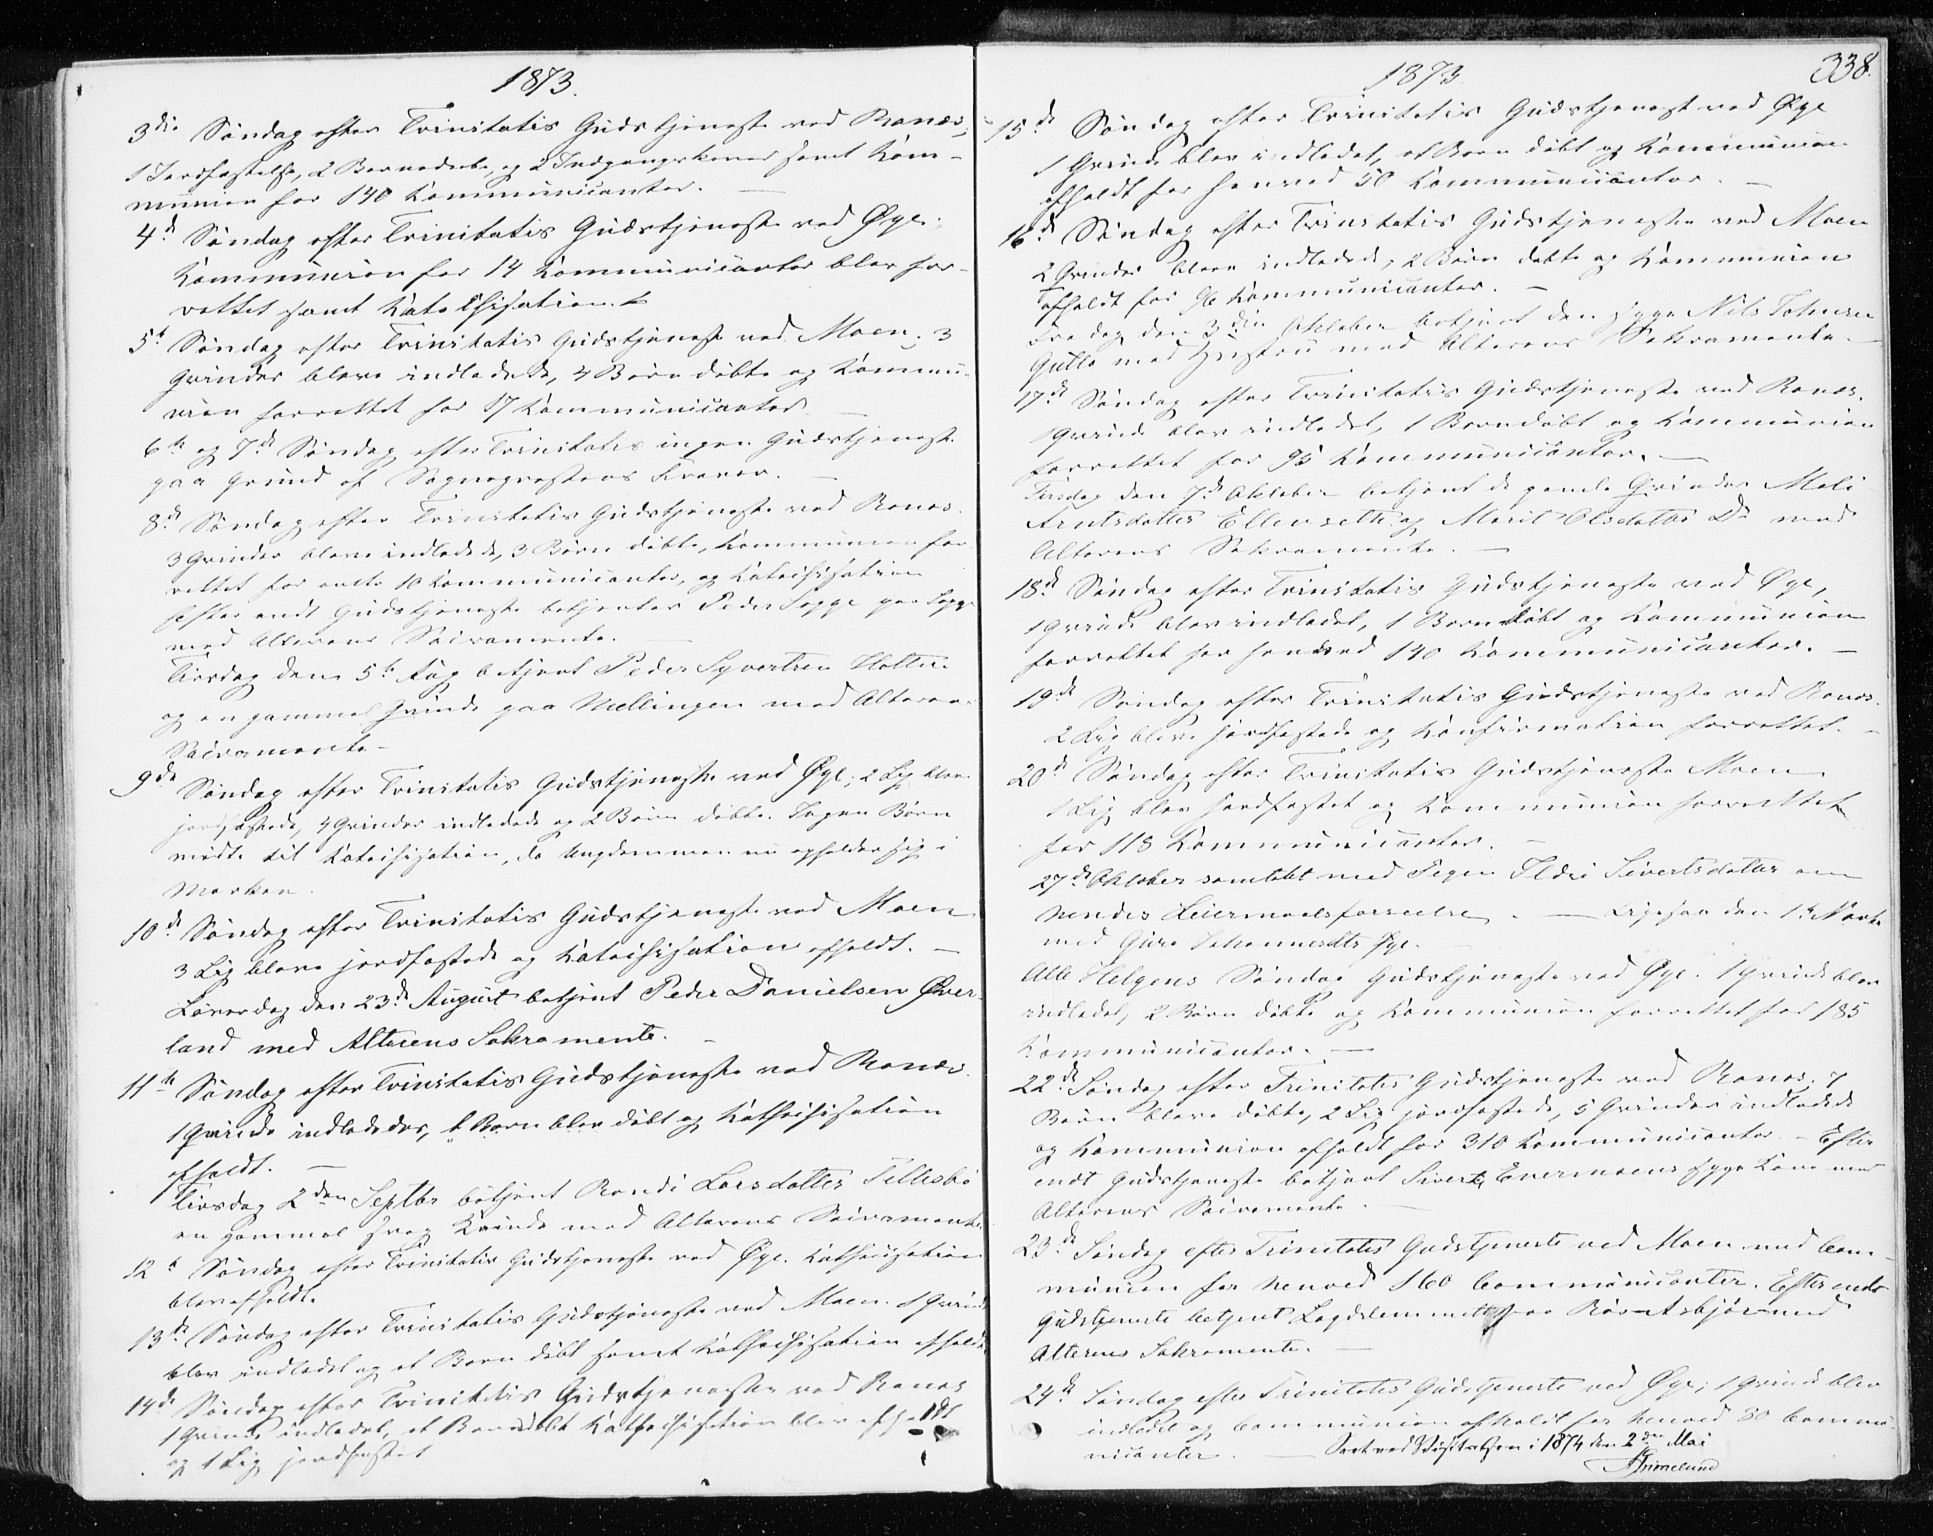 1873.
3die Söndag efter Trinitatis Gudstjeneste ved Ranæs,
1 Jordfæstelse, 2 Barnedaab, og 2 Indgangskoner samt Kom-
munion for 140 Kommunicanter. —
4d Söndag efter Trinitatis Gudstjeneste ved Øye.
Kommunion for 14 Kommunicanter blev for-
rettet samt Katechisation.
5t Söndag efter Trinitatis Gudstjeneste ved Moen. 3
Qvinder bleve indledede, 4 Börn döbte og Kommu-
nion forrettet for 57 Kommunicanter. —
6te og 7d Söndag efter Trinitatis ingen Gudstjeneste
paa Grund af Sognepræstens
8d Söndag efter Trinitatis Gudstjeneste ved Ranæs.
3 Qvinder bleve indledede, 3 Börn döbte, Kommunion for-
rettet for 10 Kommunicanter, og Katechisation
Efter endt Gudstjeneste betjentes Peder Sogge paa Sogge
med Alterens Sacramente. —
Tirsdag den 5te Aug betjent Peder Syvertsen Holten
og en gammel Qvinde paa Mellingen med Alterens
Sacramente —
9de Söndag efter Trinitatis Gudstjeneste ved Øye; 2 Lig bleve
jordfæstede, 4 Qvinder indledede og 2 Börn döbte. Ingen Börn
mödte til Katechisation, da Ungdommen nu opholder sig i
Marken.
10d Söndag efter Trinitatis Gudstjeneste ved Moen
3 Lig bleve jordfæstede og Katechisation afholdt. —
Löverdag den 23d August betjent Peder Danielsen Øver-
land med Alterens Sakramente. —
11te Söndag efter Trinitatis Gudstjeneste ved Ranæs.
1 Qvinde indlededes, 1 Barn blev döbt og Kathechisation
afholdt. —
Tirsdag 2den Septbr betjent Randi Larsdatter Tellesbö
en gammel svag Kvinde med Alterens Sacramente
12t Söndag efter Trinitatis Gudstjeneste ved Øye. Kathechisation
blev afholdt.
13de Söndag efter Trinitatis Gudstjeneste ved Moen. 1 Qvinde
blev indledet og et Barn döbt samt Kathechisation afholdt
14de Söndag efter Trinitatis Gudstjeneste ved Ranæs
1 Qvinde indledet, et Barn döbt Kathechisation blev afholdt
og 1 Lig jordfæstet
1873.
338.
15de Söndag efter Trinitatis Gudstjeneste ved Øye
1 Qvinde blev indledet, et Barn döbt og Kommunion
afholdt for henved 50 Kommunicanter. —
16d Söndag efter Trinitatis Gudstjeneste ved Moen
2 Qvinder bleve indledede, 2 Börn döbte og Kommunion
afholdt for 96 Kommunicanter. —
Fredag den 3die Oktober betjent den syge Nils Johnsen
Gulla med Hustru med Alterens Sakramente. —
17de Söndag efter Trinitatis Gudstjeneste ved Ranæs.
1 Qvinde blev indledet, 1 Barn döbt og Kommunion
forrettet for 95 Kommunicanter. —
Tirsdag den 7d Oktober betjent de gamle Qvinder Mali
Arntsdatter Ellevsette og Marit Olsdatter Do med
Alterens Sakramente. —
18d Söndag efter Trinitatis Gudstjeneste ved Øye,
1 Qvinde blev indledet, 1 Barn döbt og Kommunion
forrettet for henved 140 Kommunicanter. —
19de Söndag efter Trinitatis Gudstjeneste ved Ranæs.
2 Lig bleve jordfæstede og Konfirmation forrettet. —
20d Söndag efter Trinitatis Gudstjeneste Moen
1 Lig blev jordfæstet og Kommunion forrettet
for 118 Kommunicanter. —
27d Oktober samtalet med Pigen Ildri Sivertsdatter om
hendes Leiermaalsforseelse. — Ligesaa den 1te Novbr
med Guro Johannesdtr Øye.
Alle Helgens Söndag Gudstjeneste ved Øye. 1 Qvinde blev
indledet, 2 Börn döbte og Kommunion forrettet for 185
Kommunicanter. —
22de Söndag efter Trinitatis Gudstjeneste ved Ranæs. 7
Börn bleve döbte, 2 Lig jordfæstede, 5 Qvinder indledede
og Kommunion afholdt for 310 Kommunicanter. — Efter
endt Gudstjeneste betjent Sivert Evermoens syge Kone med
Alterens Sacramente. —
23de Söndag efter Trinitatis Gudstjeneste ved Moen med Com-
munion for henved 160 Communicanter. Efter endt
Gudstjeneste betjent Lægdslemmet paa Röv Atsbjör med
Alterens Sakramente. —
24de Söndag efter Trinitatis Gudstjeneste ved Øye; 1 Qvinde blev
indledet og Communion afholdt for henved 80 Commu-
nicanter. — Seet ved Visitatsen i 1874 den 2den Mai
Grimelund